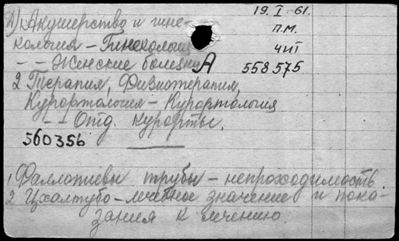 19. I - 61.
1) Акушерство и гине-
п.м.
кология - Гинекология
ЧИТ
- - Женские болезни А
558575
2. Терапия, Физиотерапия,
Курортология - Курортология
- - Отд. курорты.
560356
1. Фаллопиевы трубы - непроходимость.
2. Цхалтубо - лечебное значение и пока-
зания к лечению.